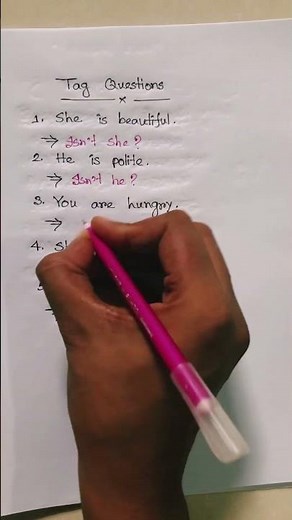 Tag Questions
1. She is beautiful.
→ Isn't she?
2. He is polite.
→ Isn't he?
3. You are hungry.
→
4.